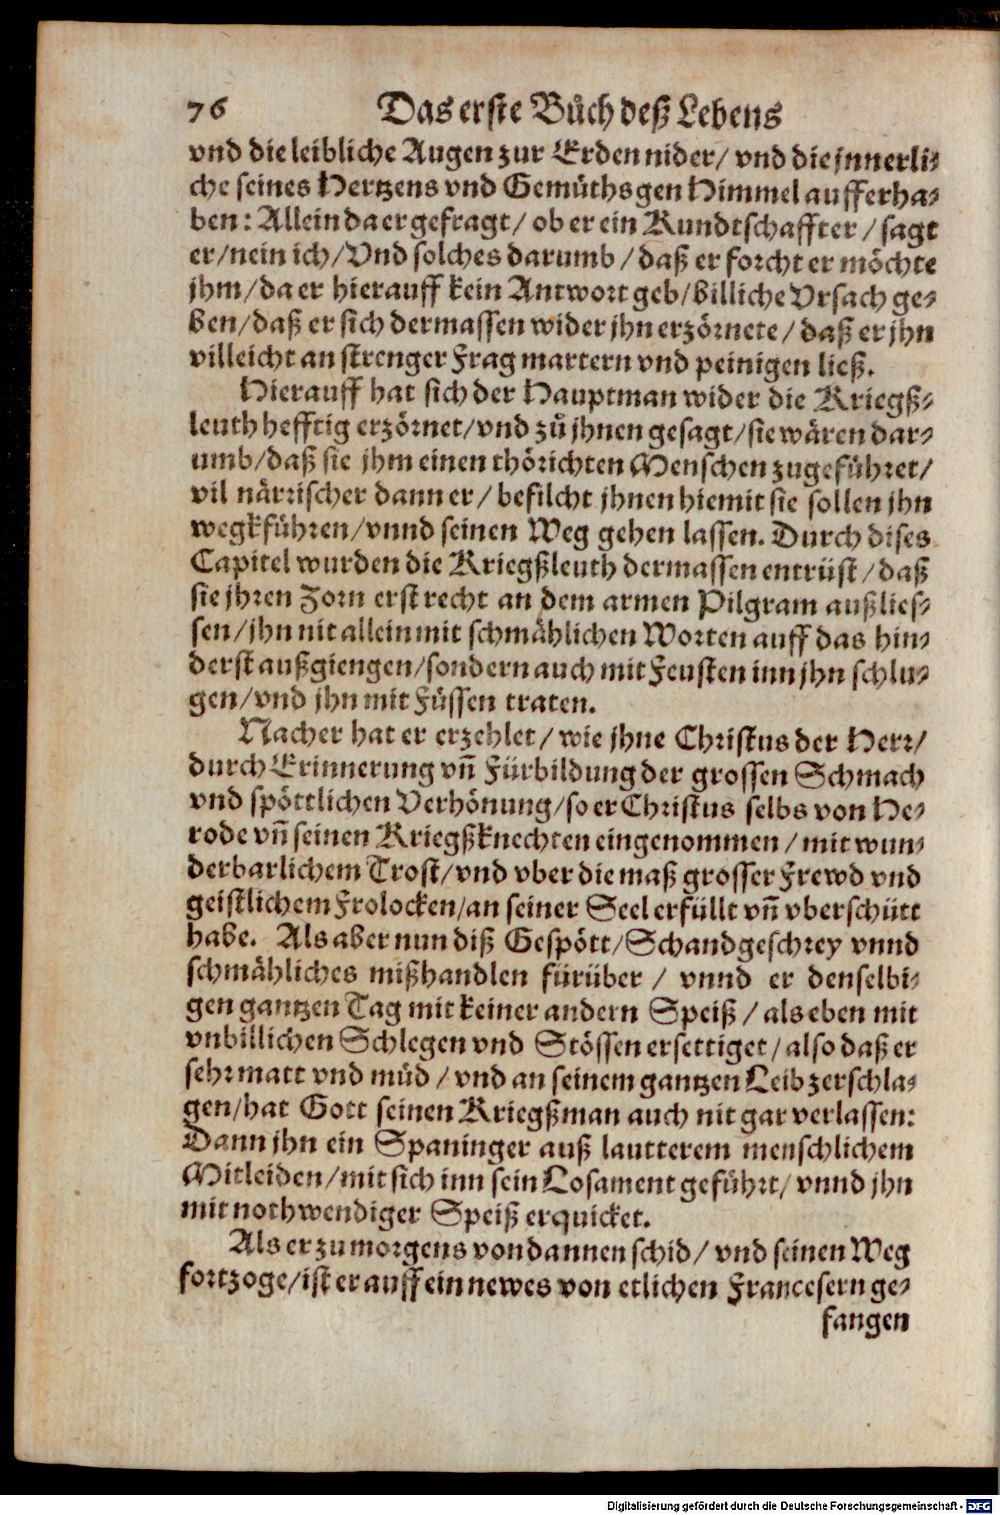 76 Das erste Bůch deß Lebens
vnd die leibliche Augen zur Erden nider/ vnd die jnnerli-
che seines Hertzens vnd Gemüths gen Himmel auffferha-
ben: Allein da er gefragt/ ob er ein Kundtschaffter/ sagt
er/ nein ich/ Vnd solches darumb/ daß er forcht er möchte
jhm/ da er hierauff kein Antwort geb/ billiche Vrsach ge-
ben/ daß er sich dermassen wider jhn erzörnete/ daß er jhn
villeicht an strenger Frag martern vnd peinigen ließ.
Hierauff hat sich der Hauptman wider die Kriegß-
leuth hefftig erzörnet/ vnd zů jhnen gesagt/ sie wären dar-
umb/ daß sie jhm einen thörichten Menschen zugeführet/
vil närrischer dann er/ befilcht jhnen hiemit sie sollen jhn
wegkführen/ vnnd seinen Weg gehen lassen. Durch dises
Capitel wurden die Kriegßleuth dermassen entrüst/ daß
sie jhren Zorn erst recht an dem armen Pilgram außlies-
sen/ jhn nit allein mit schmählichen Worten auff das hin-
derst außgiengen/ sondern auch mit Feusten inn jhn schlu-
gen/ vnd jhn mit Füssen traten.
Nacher hat er erzehlet/ wie jhne Christus der Herr/
durch Erinnerung vñ Fürbildung der grossen Schmach
vnd spöttlichen Verhönung/ so er Christus selbs von He-
rode vñ seinen Kriegßknechten eingenommen/ mit wun-
derbarlichem Trost/ vnd vber die maß grosser Frewd vnd
geistlichem Frolocken/ an seiner Seel erfüllt vñ vberschütt
habe. Als aber nun diß Gespött/ Schandgeschrey vnnd
schmähliches mißhandlen fürüber/ vnnd er denselbi-
gen gantzen Tag mit keiner andern Speiß/ als eben mit
vnbillichen Schlegen vnd Stössen ersettiget/ also daß er
sehr matt vnd müd/ vnd an seinem gantzen Leib zerschla-
gen/ hat Gott seinen Kriegßman auch nit gar verlassen:
Dann jhn ein Spaninger auß lautterem menschlichem
Mitleiden/ mit sich inn sein Losament geführt/ vnnd jhn
mit nothwendiger Speiß erquicket.
Als er zu morgens von dannen schid/ vnd seinen Weg
fortzoge/ ist er auff ein newes von etlichen Francesern ge-
fangen
Digitalisierung gefördert durch die Deutsche Forschungsgemeinschaft - DFG